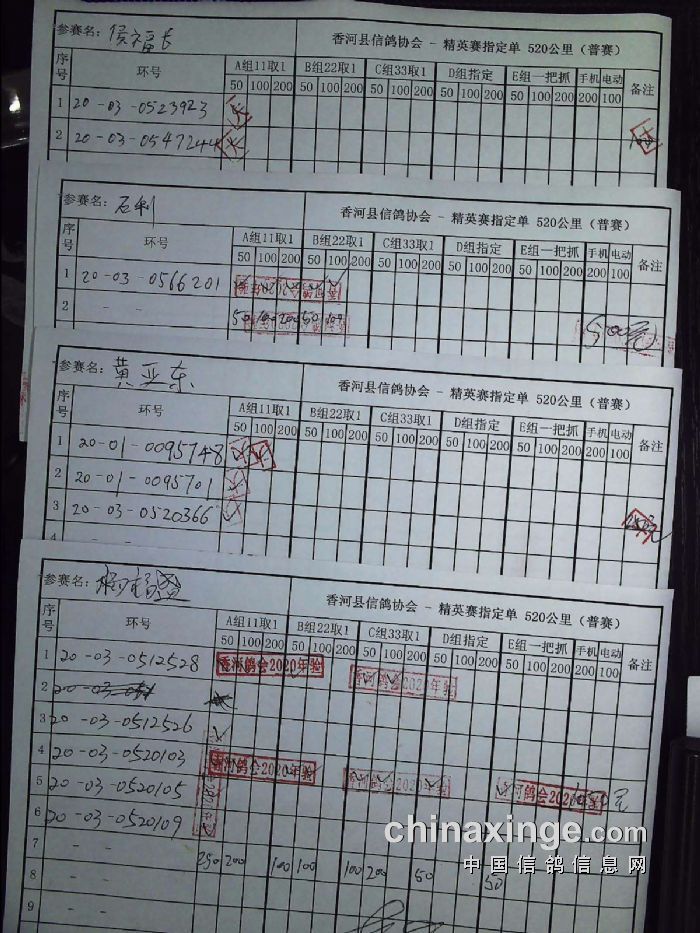 参赛名: 侯福长 香河县信鸽协会 - 精英赛指定单 520公里（普赛）
序号 环号 A组11取1 B组22取1 C组33取1 D组指定 E组一把抓 手机 电动 备注
50 100 200 50 100 200 50 100 200 50 100 200 50 100 200 200 100
1 20-03-0523923
2 20-03-0547244
参赛名: 石利 香河县信鸽协会 - 精英赛指定单 520公里（普赛）
序号 环号 A组11取1 B组22取1 C组33取1 D组指定 E组一把抓 手机 电动 备注
50 100 200 50 100 200 50 100 200 50 100 200 50 100 200 200 100
1 20-03-0566201
2 - - 50 100 200 50 100 500元
参赛名: 黄亚东 香河县信鸽协会 - 精英赛指定单 520公里（普赛）
序号 环号 A组11取1 B组22取1 C组33取1 D组指定 E组一把抓 手机 电动 备注
50 100 200 50 100 200 50 100 200 50 100 200 50 100 200 200 100
1 20-01-0095748
2 20-01-0095701
3 20-03-0520366
4 - -
参赛名: 香河县信鸽协会 - 精英赛指定单 520公里（普赛）
序号 环号 A组11取1 B组22取1 C组33取1 D组指定 E组一把抓 手机 电动 备注
50 100 200 50 100 200 50 100 200 50 100 200 50 100 200 200 100
1 20-03-0512528 香河鸽会2020年验 香河鸽会2020年验
2 20-03-051
3 20-03-0512526
4 20-03-0520103 香河鸽会2020年验 香河鸽会2020年验
5 20-03-0520105 香河鸽会2020年验
6 20-03-0520109
7 - -
8 - - 250 200 100 100 100 200 50 50
9 - -
chinaxinge.com
中国信鸽信息网